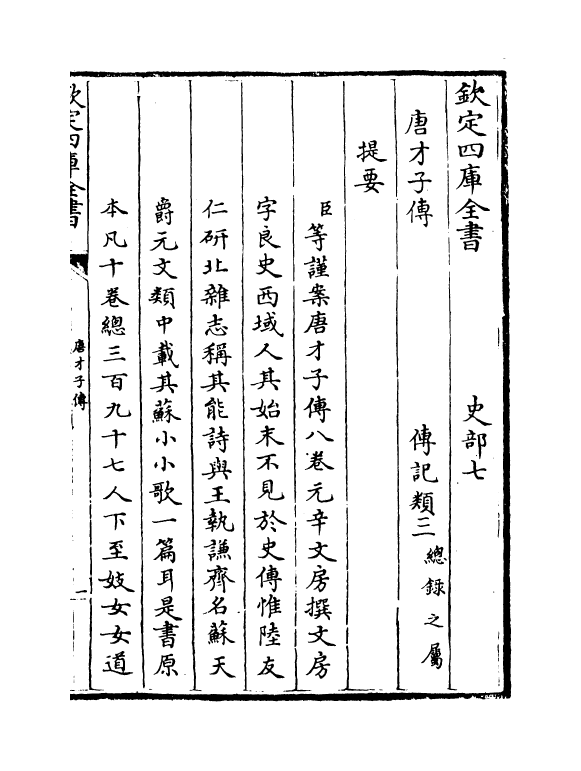 欽定四庫全書　史部七
唐才子傳　傳記類三總錄之屬
提要
臣等謹案唐才子傳八卷元辛文房撰文房
字良史西域人其始末不見於史傳惟陸友
仁研北雜志稱其能詩與王執謙齊名蘇天
爵元文類中載其蘇小小歌一篇耳是書原
本凡十卷總三百九十七人下至妓女女道
欽定四庫全書
唐才子傳
一